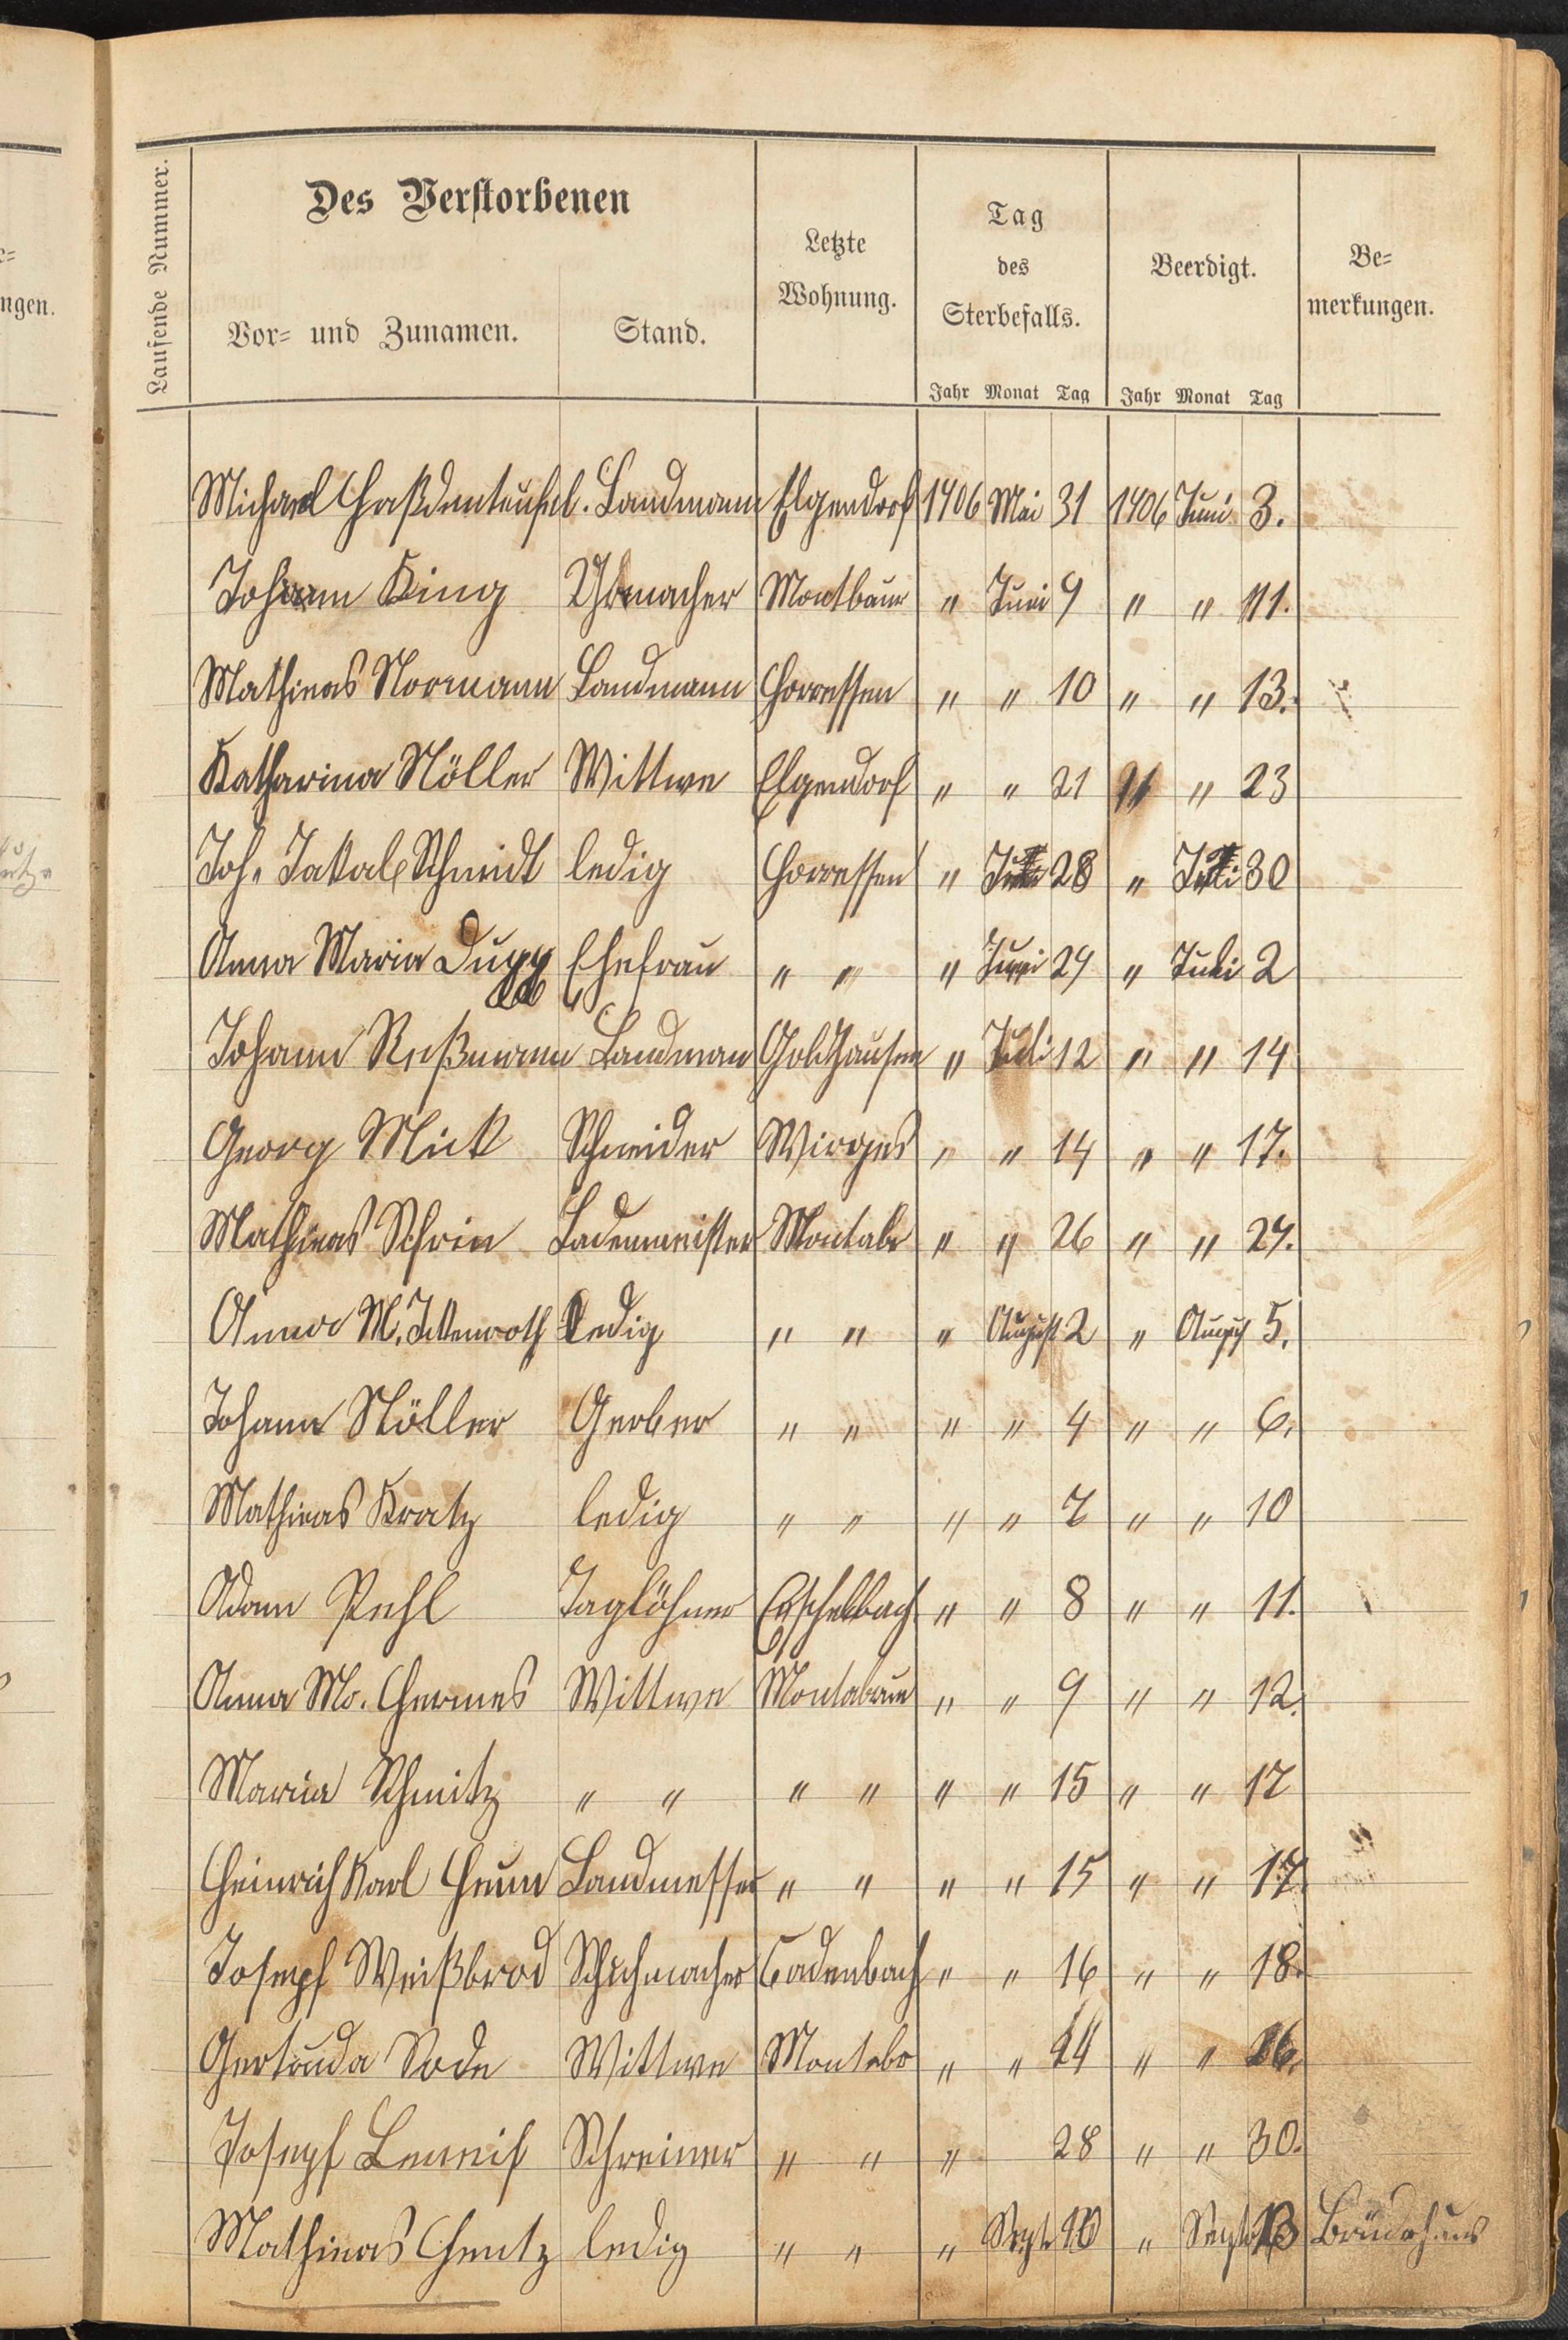 Laufende Nummer.
Des Verstorbenen
Vor- und Zunamen.
Stand.
Letzte Wohnung.
Tag des Sterbefalls.
Beerdigt.
Bemerkungen.
Jahr Monat Tag Jahr Monat Tag
Michael Haßdenteufel. Landmann Elgendorf 1906 Mai 31 1906 Juni 3.
Johann King Uhrmacher Montbaur " Juni 9 " " 11.
Mathias Normann Landmann Horressen " " 10 " " 13.
Katharina Nöller Wittwe Elgendorf " " 21 " " 23
Joh. Jakob Schmidt ledig Horressen " 28 " 30
Anna Maria Ehefrau " " " Juni 29 " Juli 2
Johann Rußmann Landman Goldhausen " Juli 12 " " 14
Georg Mück Schneider Wirges " " 14 " " 17.
Mathias Schrin Lademeister Montabr " " 26 " " 29.
Anna M. Ickenroth Ledig " " " August 2 " August 5.
Johann Nöller Gerber " " " " 4 " " 6.
Mathias Kratz ledig " " " " 7 " " 10
Adam Pehl Taglöhner Eschelbach " " 8 " " 11.
Anna M. Hermes Wittwe Montabaur " " 9 " " 12.
Maria Schmitz " " " " " " 15 " " 17
Heinrich Karl Heun Landmesser " " " " 15 " " 17.
Josepf Weißbrod Schuhmacher Cadenbach " " 16 " " 18.
Gertruda Sode Wittwe Montabr " " 24 " " 26.
Josepf Schreiner " " " 28 " " 30.
Mathias Hentz ledig " " " Sept. 10 " Sept. 13 Brüderhaus